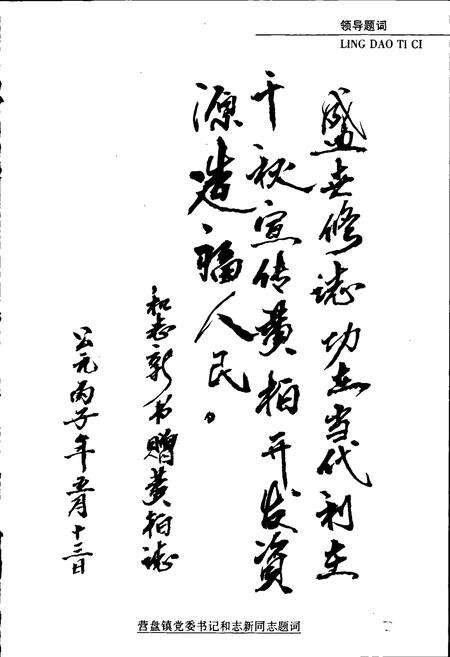 领导题词
LING DAO TI CI
盛世修志功在当代利在
千秋宣传黄柏开发资
源造福人民。
和志新书赠黄柏志
公元丙子年五月十三日
营盘镇党委书记和志新同志题词